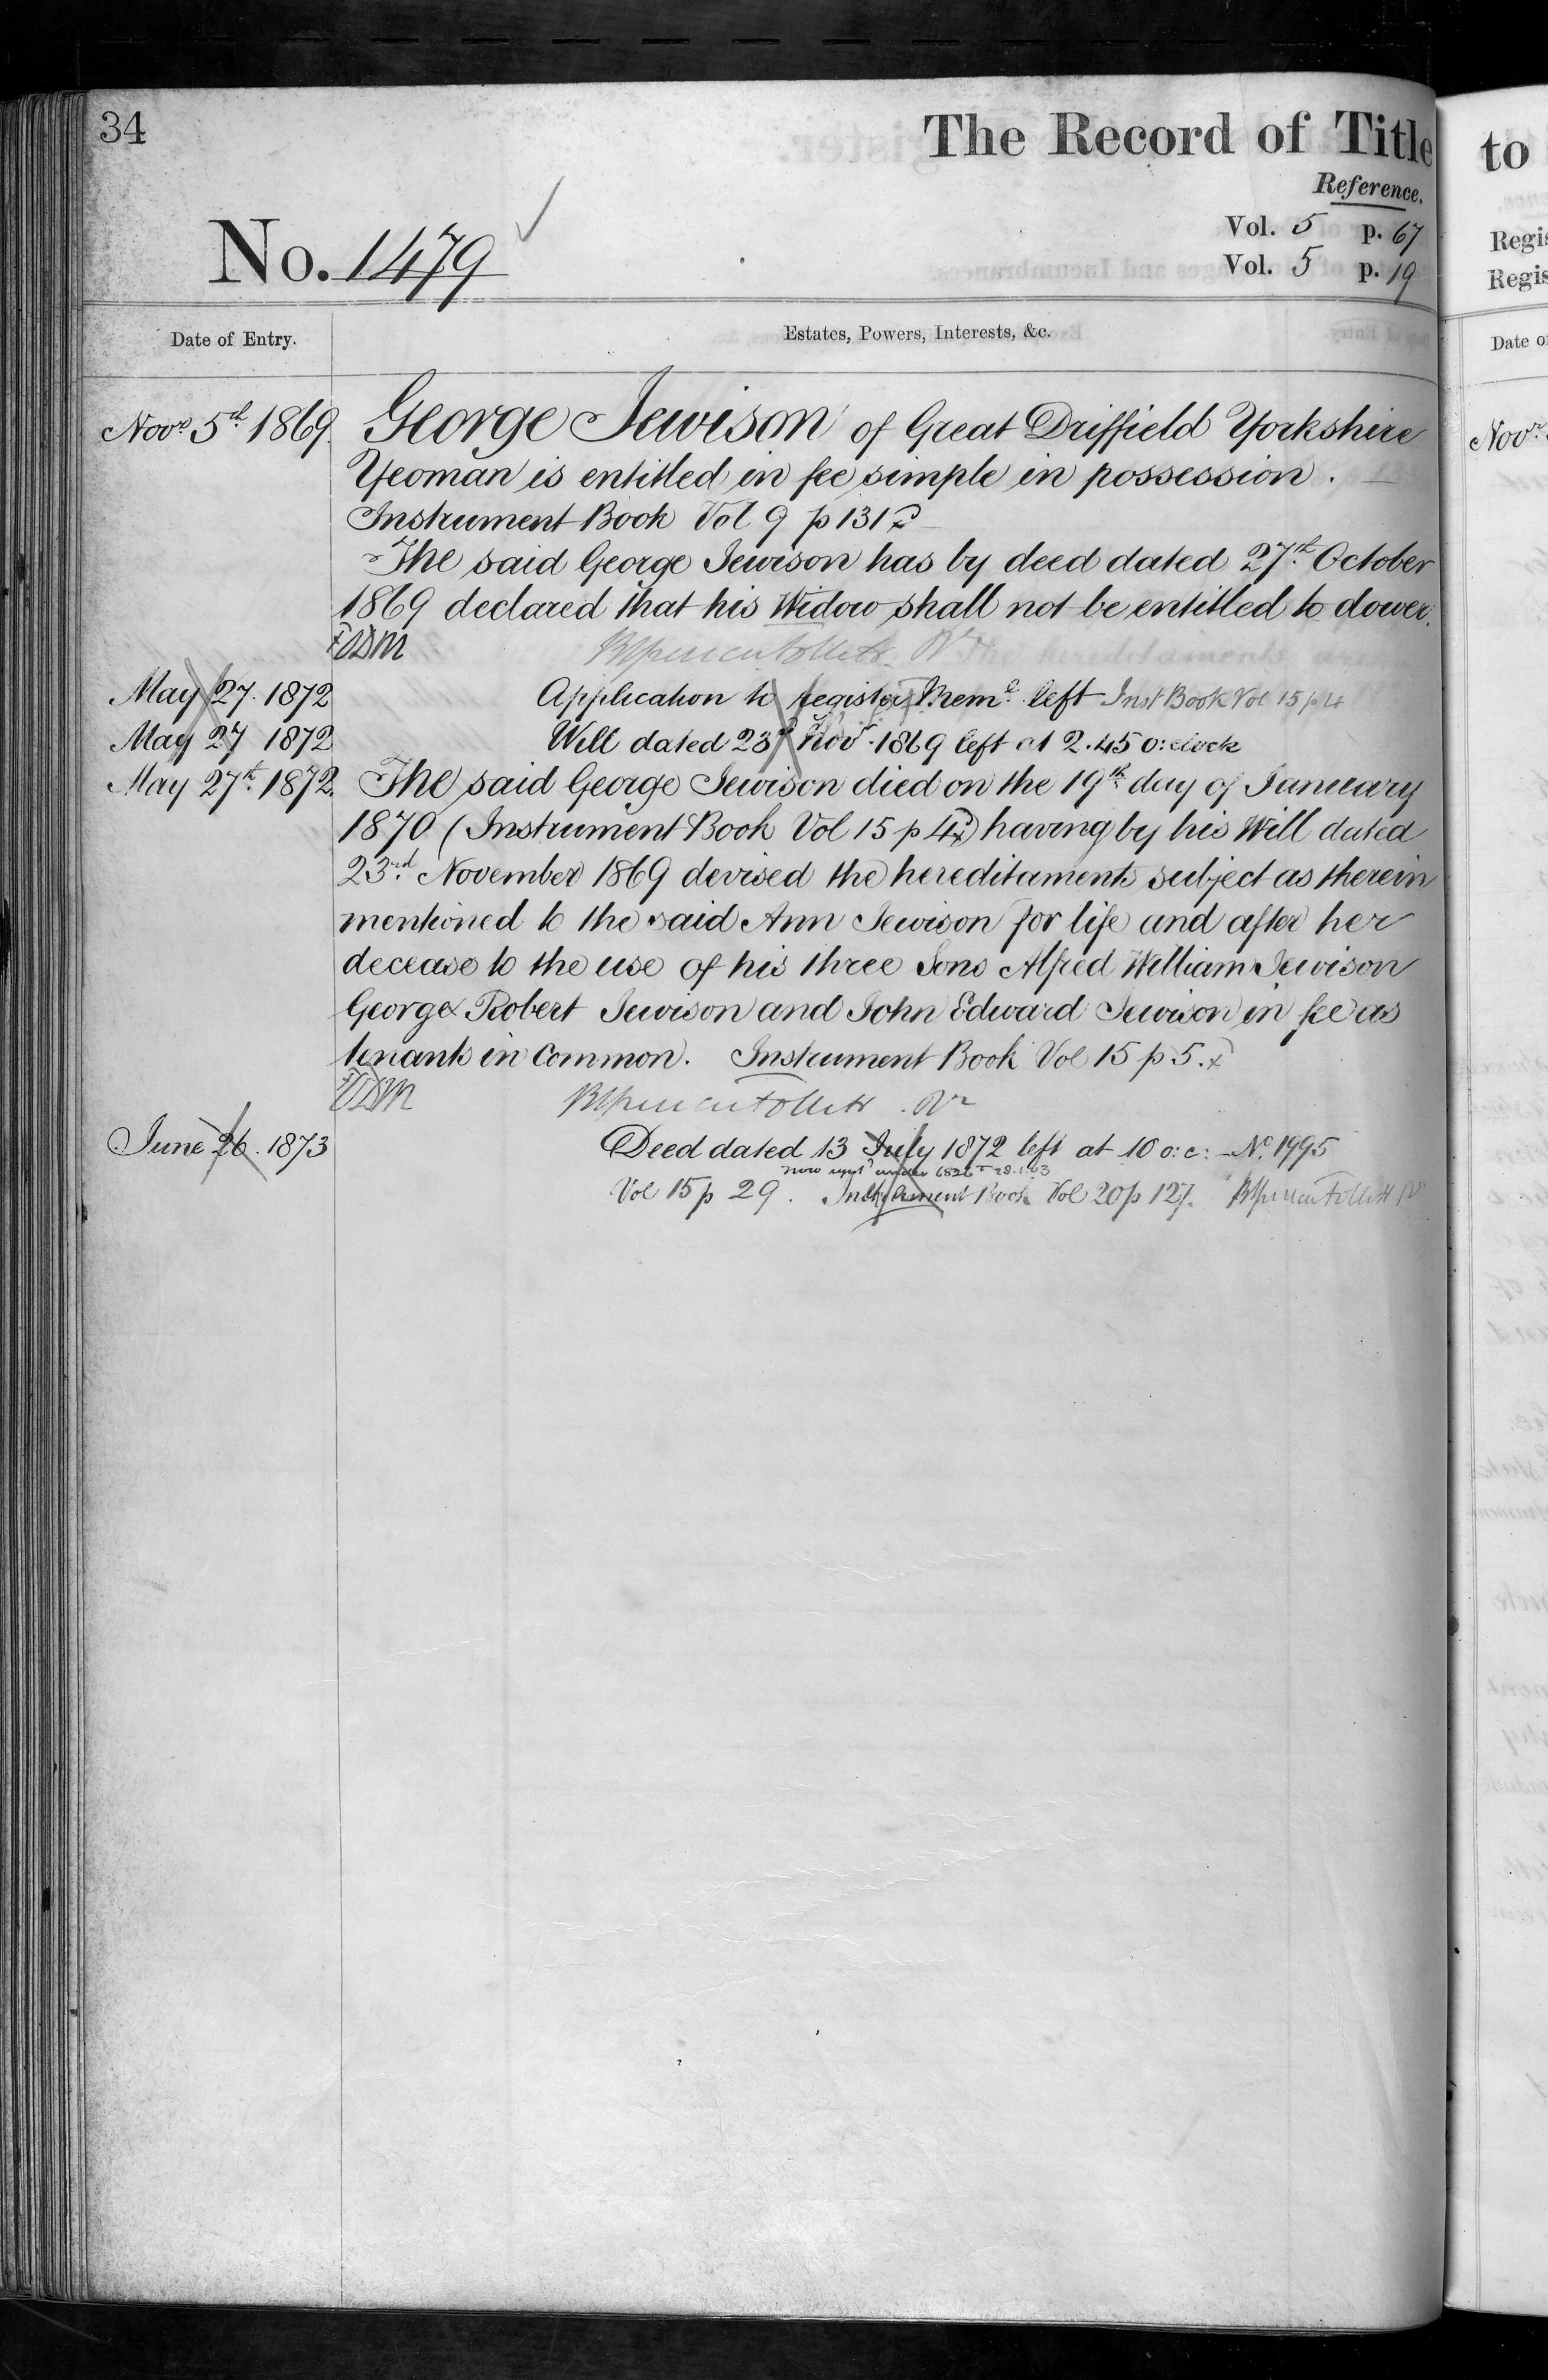 34
The Record of Title
Reference.
No. 1479
Vol. 5 p. 67
Vol. 5 p. 19
Date of Entry.
Estates, Powers, Interests, &c.
Novr 5th 1869. George Jewison of Great Driffield Yorkshire
Yeoman is entitled in fee simple in possession.
Instrument Book Vol 9 p 131
The said George Jewison has by deed dated 27th October
1869 declared that his Widow shall not be entitled to dower.
May 27. 1872 Application to register Meml left Inst Book Vol 15 p 4
May 27 1872 Will dated 23d Novr 1869 left at 2.45 o:clock
May 27th 1872. The said George Jewison died on the 19th day of January
1870 (Instrument Book Vol 15 p 4) having by his Will dated
23rd November 1869 devised the hereditaments subject as therein
mentioned to the said Ann Jewison for life and after her
decease to the use of his three Sons Alfred William Jewison
George Robert Jewison and John Edward Jewison in fee as
tenants in common. Instrument Book Vol 15 p 5.
June 26. 1873 Deed dated 13 July 1872 left at 10 o:c: - No. 1995
now regd under 6826
Vol 15 p 29. Instrument Book Vol 20 p 127.
to
Regis
Regis
Date o
Novr